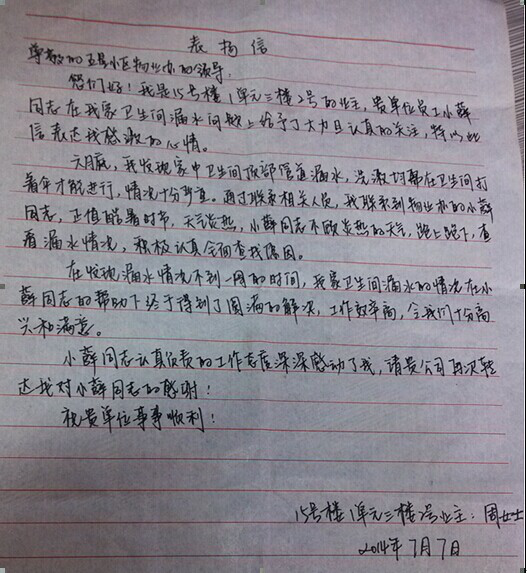 表扬信
尊敬的五号小区物业办的领导，
您们好！我是15号楼1单元三楼2号的业主，贵单位员工小薛
同志在我家卫生间漏水问题上给予了大力且认真的关注，特以此
信表达我感激的心情。
六月底，我发现家中卫生间顶部管道漏水，洗漱时都在卫生间打
着伞才能进行，情况十分紧急。通过联系相关人员，我联系到物业办的小薛
同志，正值酷暑时节，天气炎热，小薛同志不顾炎热的天气，跑上跑下，查
看漏水情况，积极认真全面查找原因。
在发现漏水情况不到一周的时间，我家卫生间漏水的情况在小
薛同志的帮助下终于得到了圆满的解决，工作效率高，令我们十分高
兴和满意。
小薛同志认真负责的工作态度深深感动了我，请贵公司再次转
达我对小薛同志的感谢！
祝贵单位事事顺利！
15号楼1单元三楼2号业主：周女士
2014年7月7日